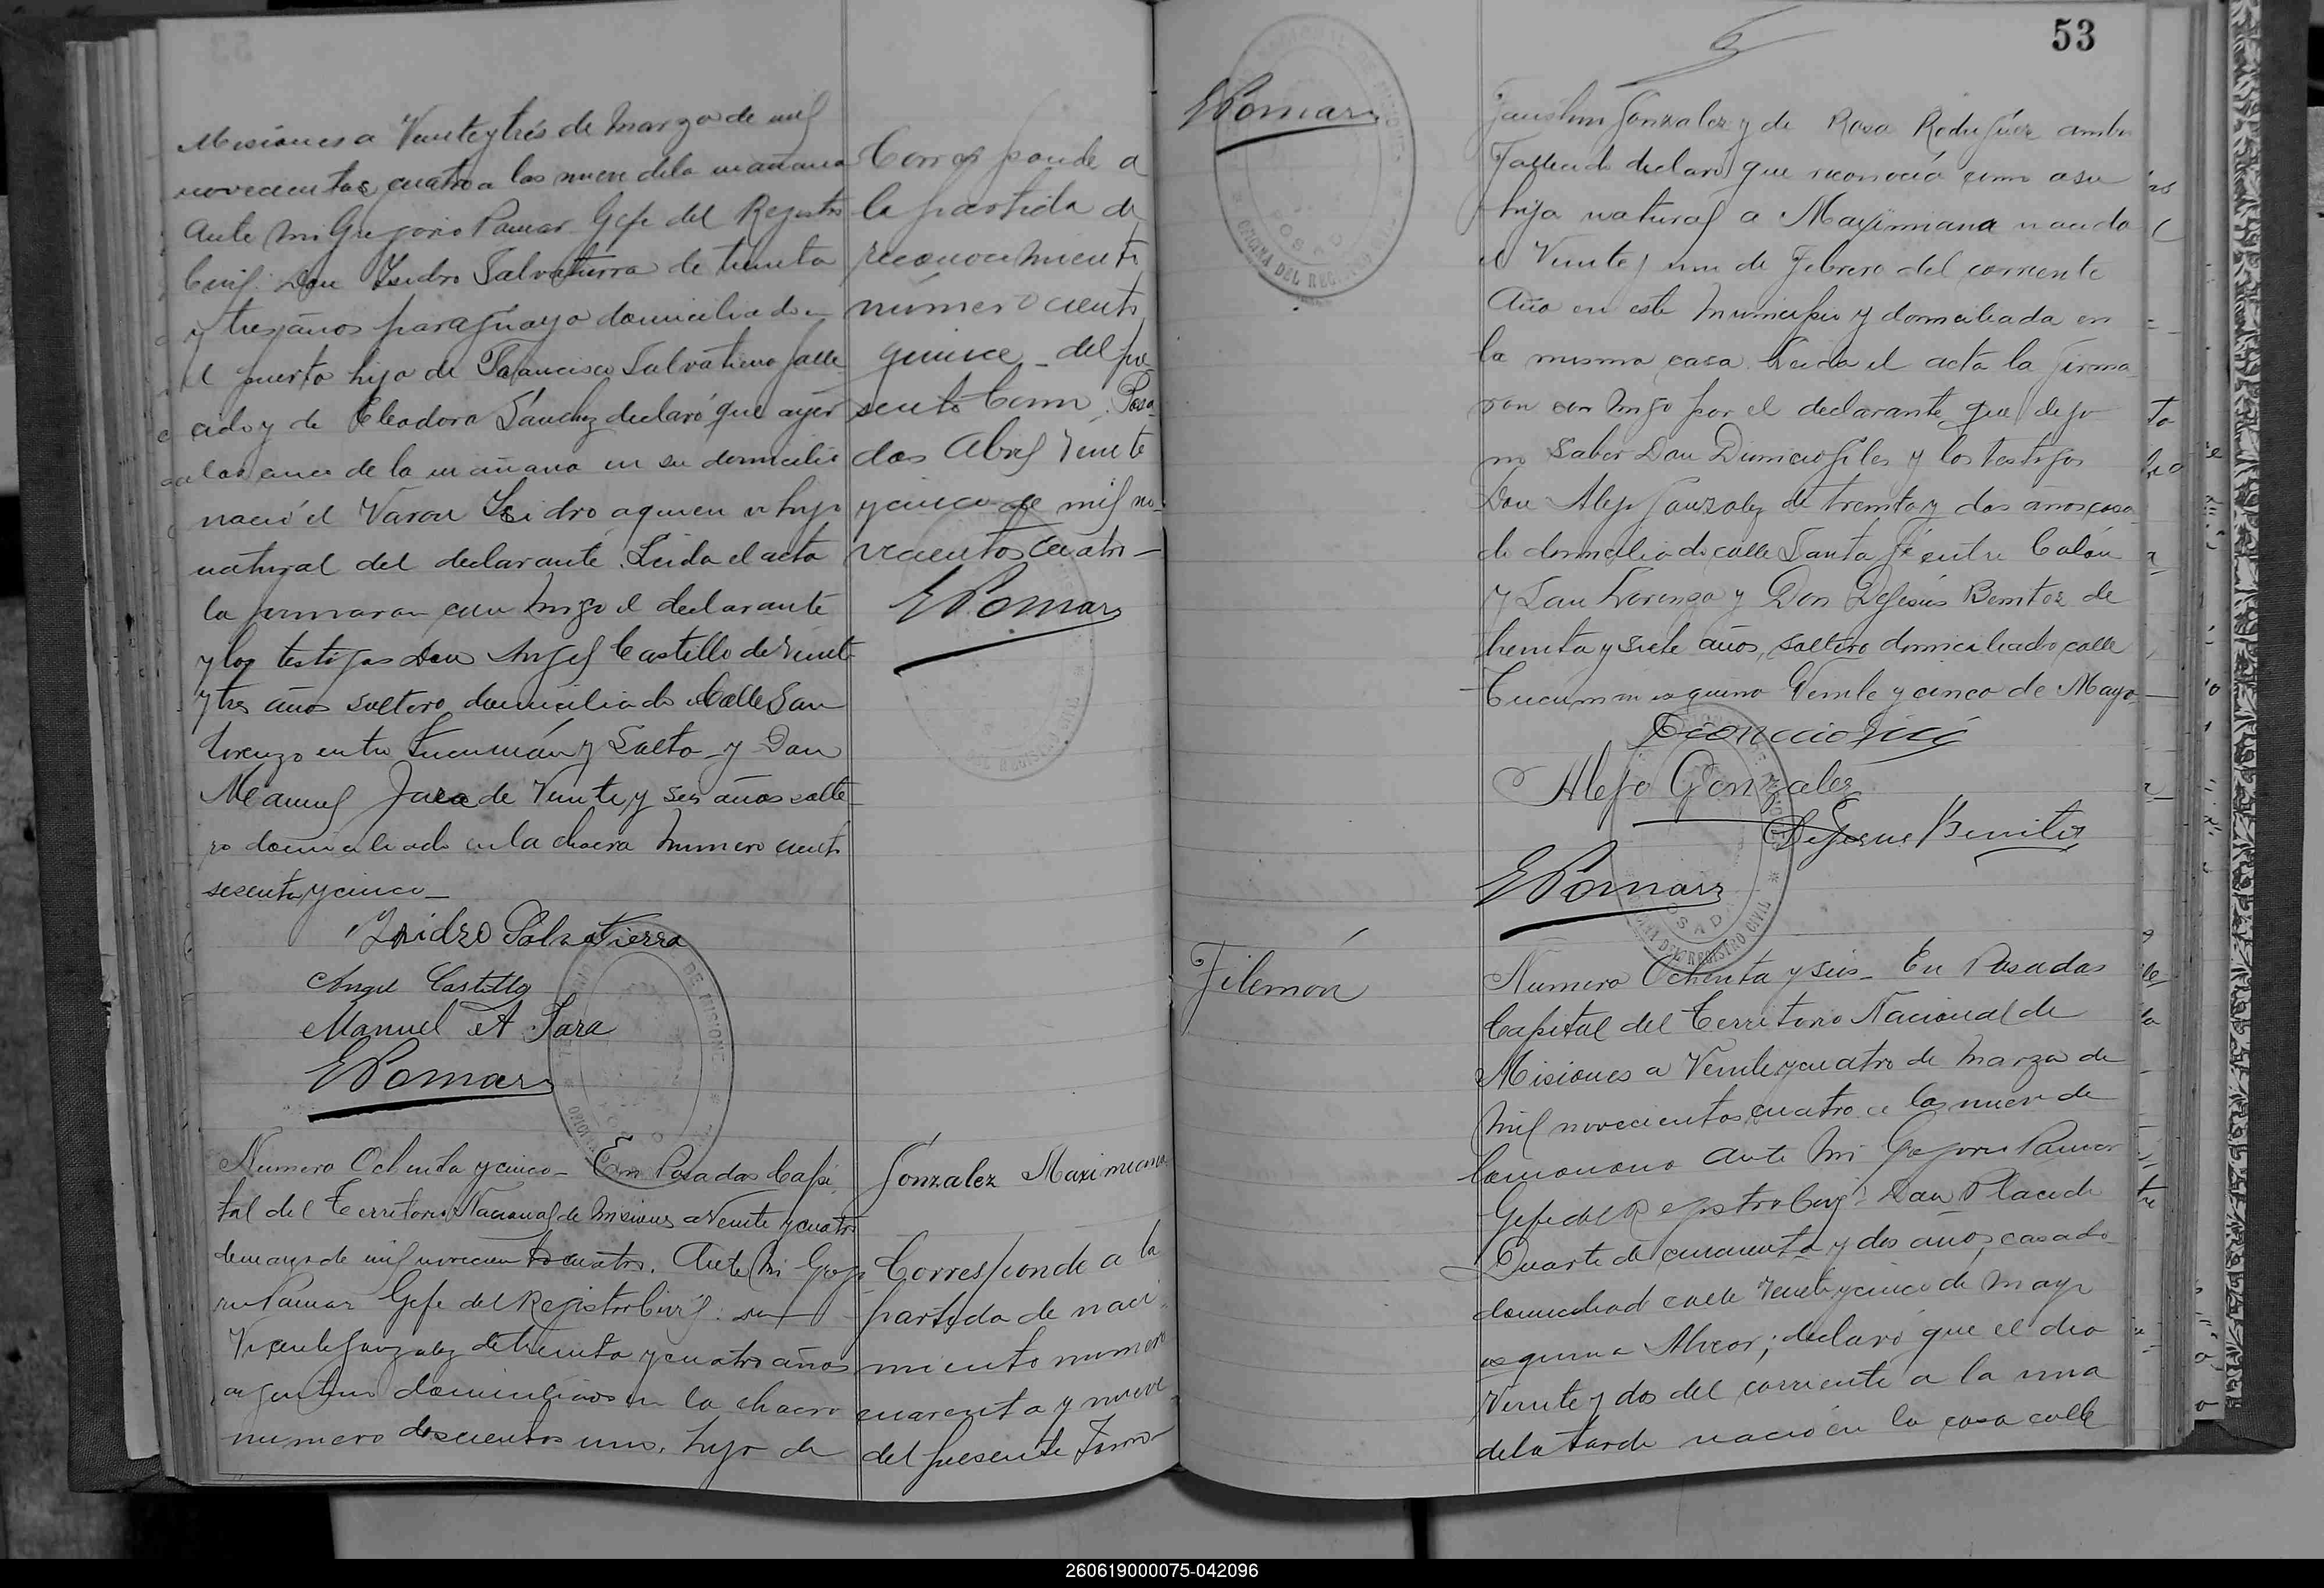 Misiones a Veinte y trés de Marzo de mil
novecientos cuatro a las nueve de la mañana
Ante Mi Gregorio Pomar Gefe del Registro
Civil: Don Isidro Salvatierra de treinta
y tres años paraguayo domiciliado en
el puerto hijo de Francisco Salvatierra falle
cido y de Eleodora Sánchez declaró que ayer
a las once de la mañana en su domicilio
nació el Varon Isidro a quien es hijo
natural del declarante. Leida el acta
la firmaron con migo el declarante
y los testigos Don Angel Castillo de veinte
y tres años soltero domiciliado Calle San
Lorenzo entre Tucumán y Salta y Don
Manuel Jara de Veinte y seis años solte
ro domiciliado en la chacra numero ciento
sesenta y cinco
Ysidro Salvatierra
Angel Castillo
Manuel A Jara
GPomar
Numero Ochenta y cinco - En Posadas Capi
tal del Territorio Nacional de Misiones a Veinte y cuatro
de marzo de mil novecientos cuatro. Ante Mi Grego
rio Pomar Gefe del Registro Civil: Don
Vicente Gonzalez de treinta y cuatro años
argentino domiciliado en la chacra
numero doscientos uno, hijo de
Corresponde a
la partida de
reconocimiento
número ciento
quince - del pre
sente Tomo. Posa
das Abril Veinte
y cinco de mil no-
vecientos cuatro -
GPomar
Gonzalez Maximiana
Corresponde a la
partida de naci
miento numero
cuarenta y nueve
del presente Tomo
53
GPomar
OFICINA DEL REGISTRO
Faustino Gonzalez y de Rosa Rodriguez ambos
fallecido declaró que reconocia como a su
hija natural a Maximiana nacida
el Veinte y uno de Febrero del corriente
Año en este Municipio y domiciliada en
la misma casa. Leida el acta la firma
ron con migo por el declarante que dijo
no saber Don Dionicio Giles y los testigos
Don Alejo Gonzalez de treinta y dos años casa
do domiciliado calle Santa Fé entre Colón
y San Lorenzo y Don Dejesús Benitez de
treinta y siete años, soltero domiciliado calle
Tucuman esquina Veinte y cinco de Mayo -
Alejo Gonzalez
Dejesus Benites
GPomar
OFICINA DEL REGISTRO CIVIL
Filemón
Numero Ochenta y seis - En Posadas
Capital del Territorio Nacional de
Misiones a Veinte y cuatro de Marzo de
Mil novecientos cuatro a las nueve de
la mañana Ante Mi Gregorio Pomar
Gefe del Registro Civil: Don Placido
Duarte de cincuenta y dos años, casado
domiciliado calle Veinte y cinco de Mayo
esquina Alvear; declaró que el dia
Veinte y dos del corriente a la una
de la tarde nació en la casa calle
260619000075-042096